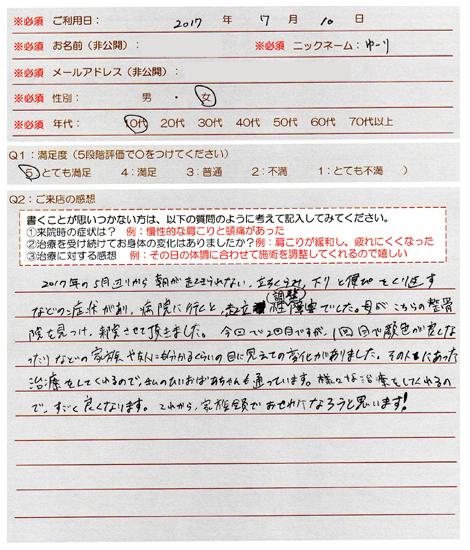 ※必須 ご利用日： 2017 年 7 月 10 日
※必須 お名前（非公開）： ※必須 ニックネーム：ゆーり
※必須 メールアドレス（非公開）：
※必須 性別： 男 ・ 女
※必須 年代： 10代 20代 30代 40代 50代 60代 70代以上
Q1：満足度（5段階評価で〇をつけてください）
5：とても満足 4：満足 3：普通 2：不満 1：とても不満 ）
Q2：ご来店の感想
書くことが思いつかない方は、以下の質問のように考えて記入してみてください。
①来院時の症状は？ 例：慢性的な肩こりと頭痛があった
②治療を受け続けてお身体の変化はありましたか？例：肩こりが緩和し、疲れにくくなった
③治療に対する感想 例：その日の体調に合わせて施術を調整してくれるので嬉しい
2017年の5月辺りから朝が起きられない、立ちくらみ、下りと便秘をくり返す
などの症状があり、病院に行くと、起立調整障害でした。母がこちらの整骨
院を見つけ、来院させて頂きました。今回で2回目ですが、1回目で顔色が良くな
ったりなどの家族や友人にも分かるくらいの目に見えての変化がありました。その人にあった
治療をしてくれるので、私のおばあちゃんも通っています。様々な治療をしてくれるの
で、すごく良くなります。これから、家族全員でおせわになろうと思います！